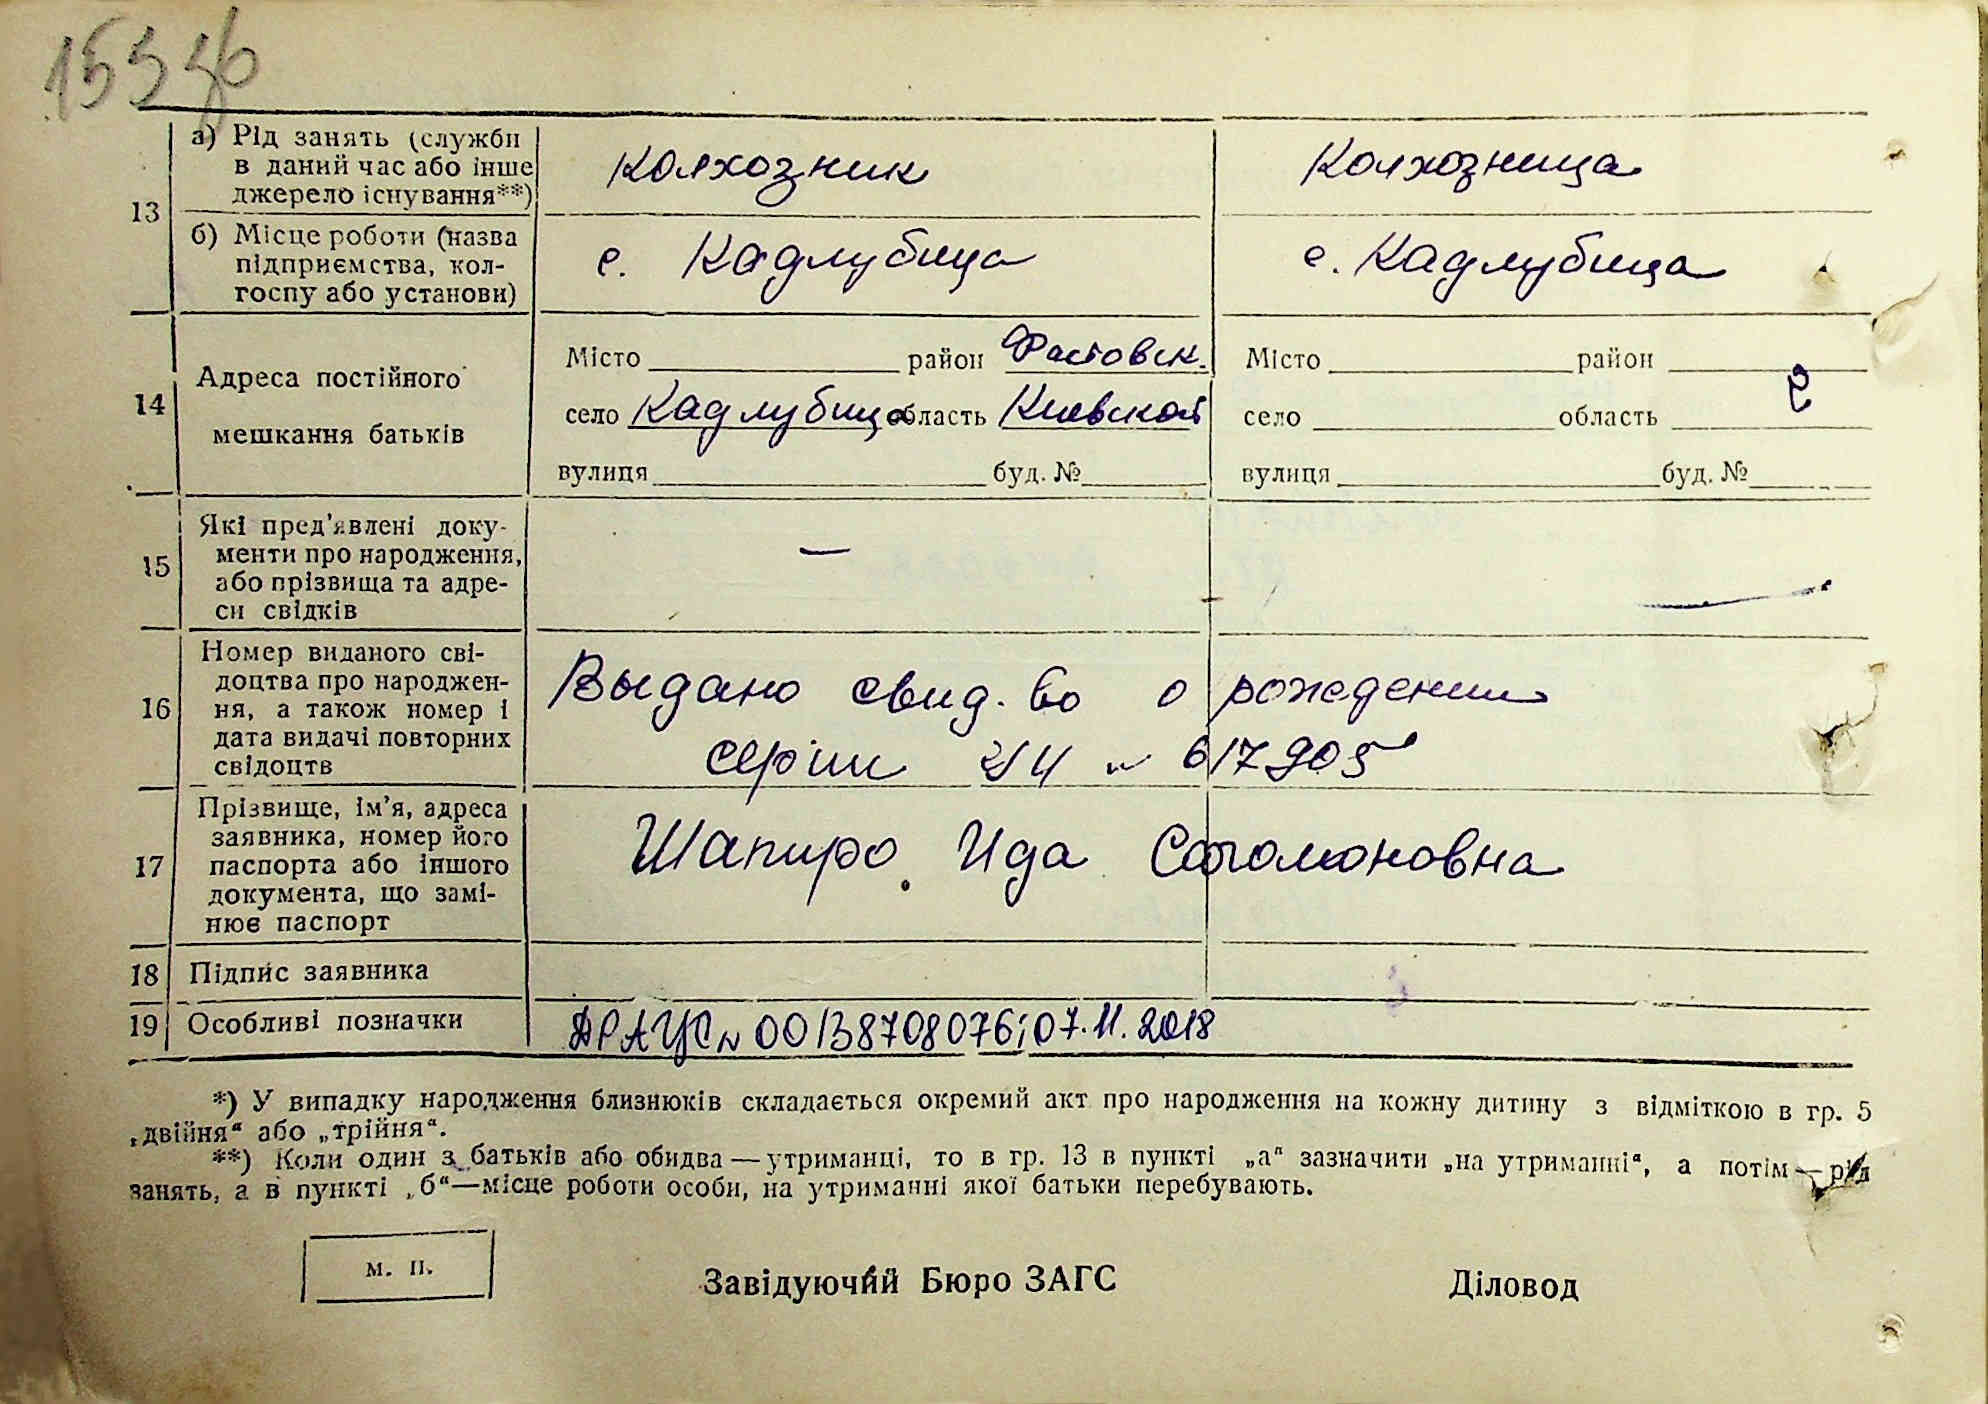 13
а) Рід занять (служби
в даний час або інше
джерело існування**)
Колхозник
Колхозница
б) Місце роботи (назва
підприємства, кол-
госпу або установи)
с. Кадлубица
с. Кадлубица
14
Адреса постійного
мешкання батьків
Місто район Фастовск.
село Кадлубица область Киевской
вулиця буд. №
Місто район
село область
вулиця буд. №
15
Які пред'явлені доку-
менти про народження,
або прізвища та адре-
си свідків
—
—
16
Номер виданого сві-
доцтва про народжен-
ня, а також номер і
дата видачі повторних
свідоцтв
Выдано свид. во о рождении
серии № 617905
17
Прізвище, ім'я, адреса
заявника, номер його
паспорта або іншого
документа, що замі-
нює паспорт
Шапиро Ида Соломоновна
18 Підпис заявника
19 Особливі позначки
ДРАЦС № 00138708076; 07.11.2018
*) У випадку народження близнюків складається окремий акт про народження на кожну дитину з відміткою в гр. 5
„двійня“ або „трійня“.
**) Коли один з батьків або обидва — утриманці, то в гр. 13 в пункті „а“ зазначити „на утриманні“, а потім — рід
занять, а в пункті „б“—місце роботи особи, на утриманні якої батьки перебувають.
м. п.
Завідуючий Бюро ЗАГС
Діловод